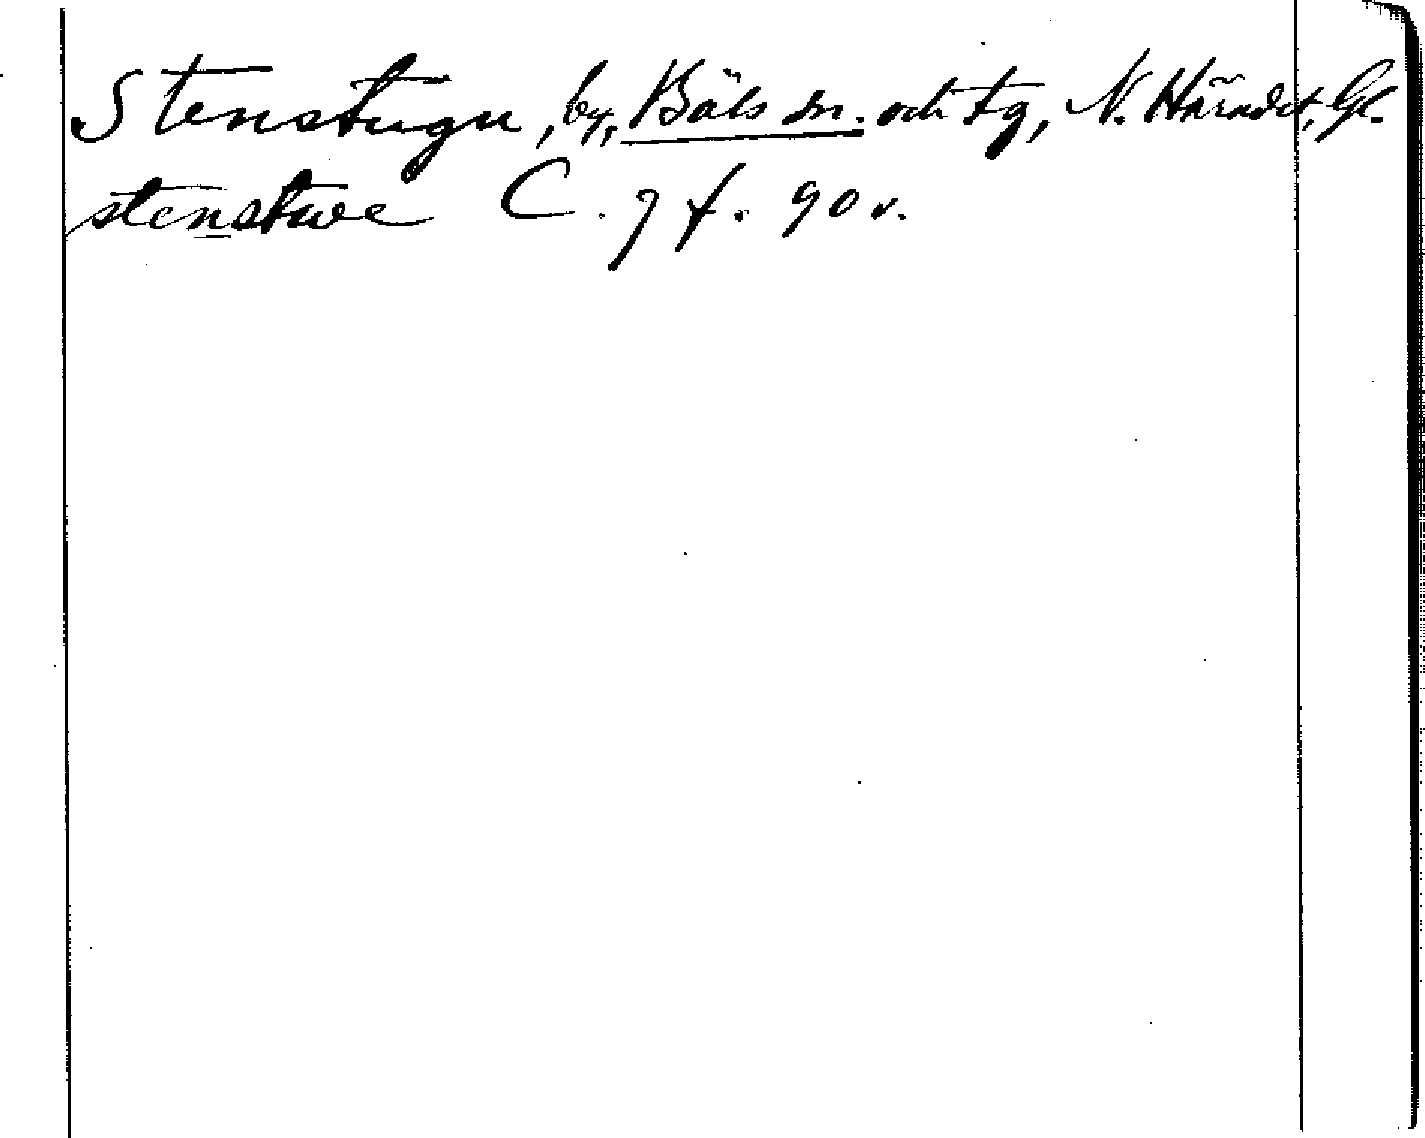 Stenstugu, by, Bäls sn. och tg, N. Häradet, Gl.
stenstwe C. 7 f. 90 v.